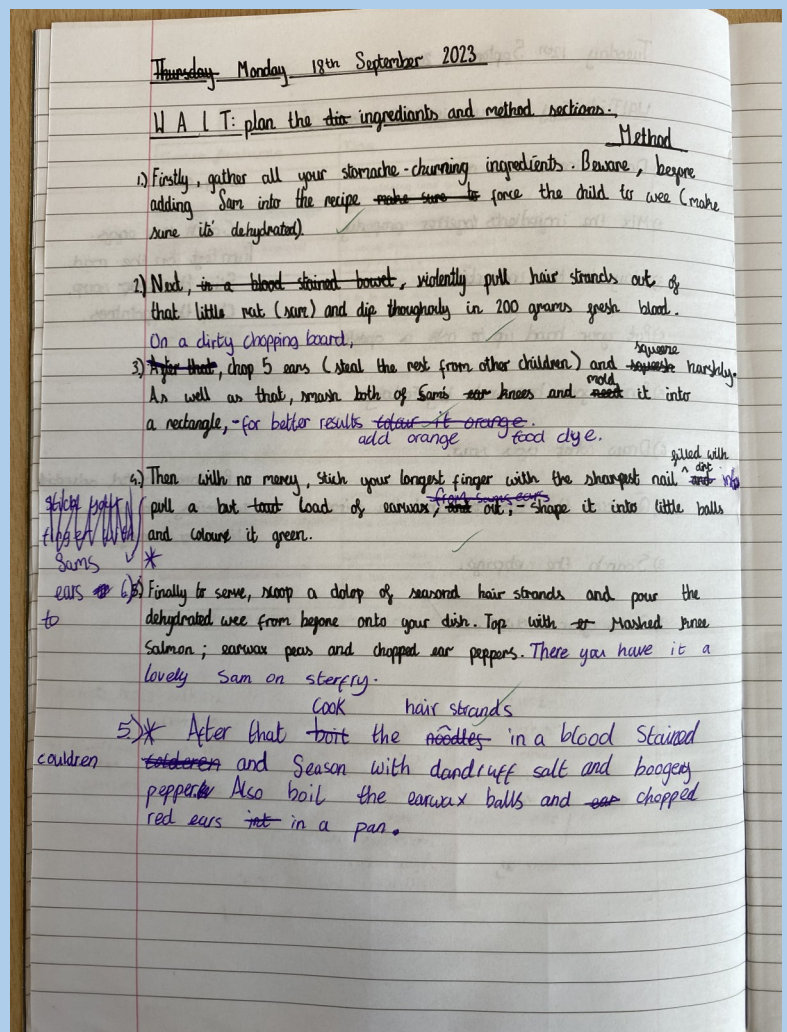 Thursday Monday 18th September 2023
W A L T: plan the dia ingrediants and method sections.
Method
1.) Firstly, gather all your stomache-churning ingredients. Beware, before
adding Sam into the recipe make sure to force the child to wee (make
sure its' dehydrated).
2.) Next, in a blood stained bowel, violently pull hair strands out of
that little rat (sam) and dip thoughorly in 200 grams fresh blood.
On a dirty chopping board,
squeeze
3.) After that, chop 5 ears (steal the rest from other children) and squeesh harshly.
mold
As well as that, smash both of Sam's ear knees and need it into
a rectangle, - for better results colour it orange.
add orange food dye.
filled with
dirt
4.) Then with no mercy, stick your longest finger with the sharpest nail and into
from sams ears
pull a but tout load of earwax; and out; - shape it into little balls
and coloure it green.
Sams
ears
to
*
6.) 5) Finally to serve, scoop a dolop of seasoned hair strands and pour the
dehydrated wee from before onto your dish. Top with er Mashed knee
Salmon; earwax peas and chopped ear peppers. There you have it a
lovely Sam on sterfry.
Cook hair strands
5.) * After that boit the noodles in a blood Stained
couldren
colderen and Season with dandruff salt and boogery
pepper Also boil the earwax balls and ear chopped
red ears int in a pan.